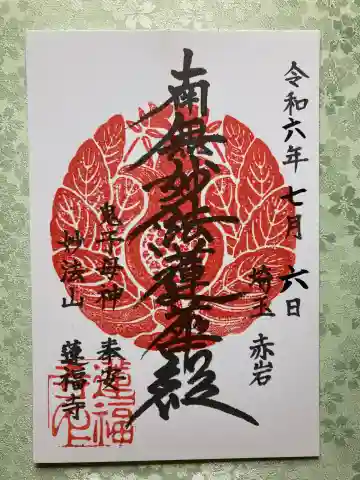 令和六年七月六日
埼玉 赤岩
南無妙法蓮華経
鬼子母神 奉安
妙法山 蓮福寺